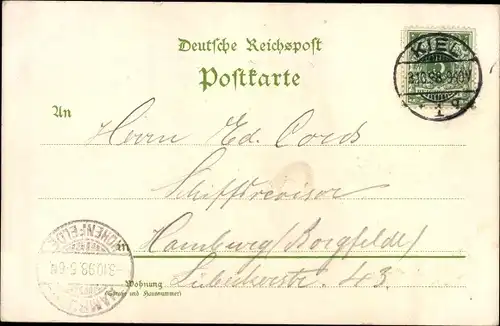 Deutsche Reichspost
Postkarte
KIEL
3.10.98. 9-10V.
* 1 g.
An
Herrn Ed. Cords
Schiffsrevisor
Hamburg/Borgfelde/
Lübeckerstr. 43.
Wohnung
(Straße und Hausnummer)
HOHENFELDE
3.10.98. 5-6N
HAMBURG